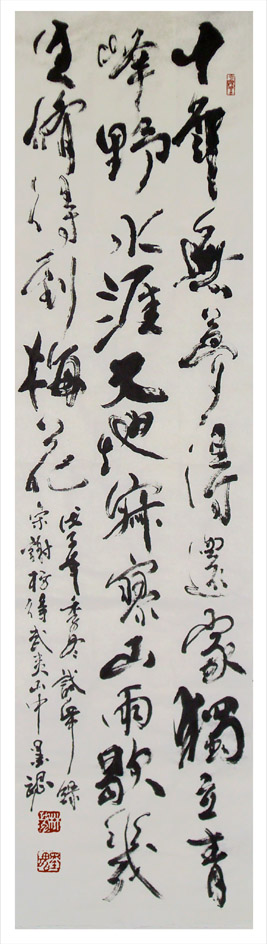 十年無夢得還家獨立青
峰野水涯天地寂寥山雨歇幾
生脩得到梅花
戊子年季冬試筆錄
宋謝枋得武夷山中